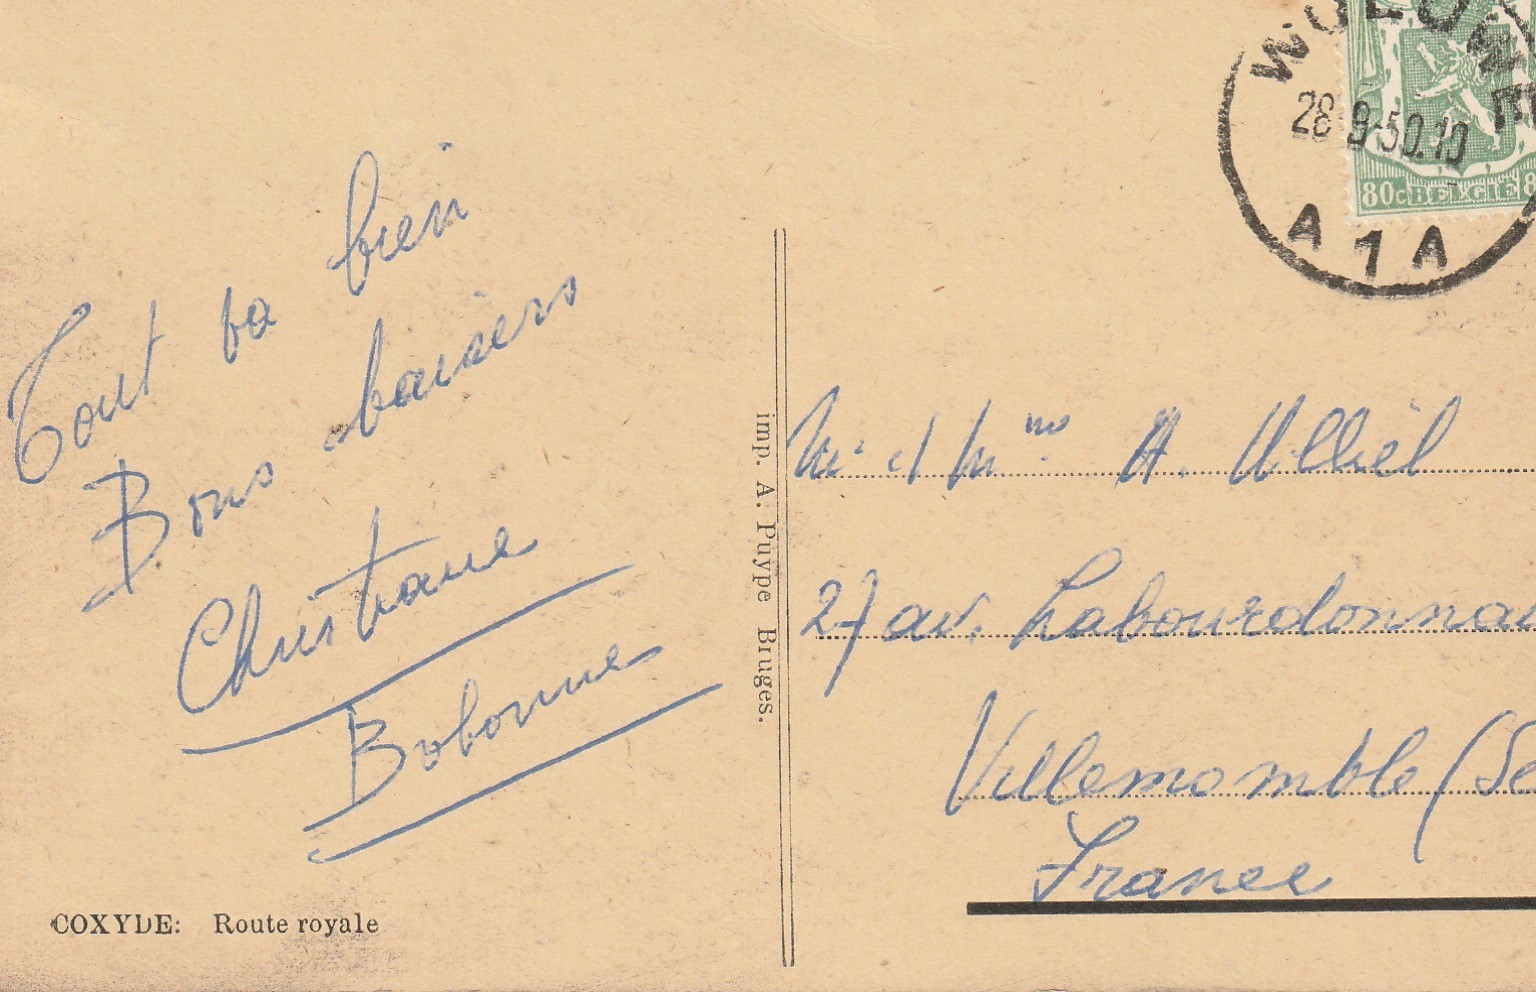 Tout va bien
Bons baisers
Christiane
Bobonne
COXYDE: Route royale
imp. A. Puype Bruges.
WOLUWE
28-8-50.10
A 1 A
80c BELGIE 8
Mr et Mme A. Ulliel
27 av. Labourdonnai
Villemomble (Se
France